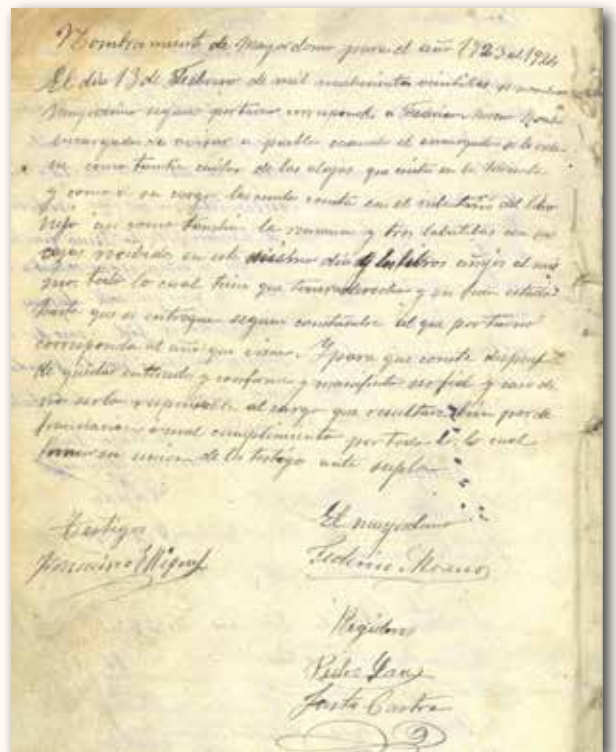 Nombramiento de Mayordomo para el año 1923 al 1924
El dia 13 de Febrero de mil novecientos veintitres se nombra
Mayordomo segun por turno corresponde a Federico Moreno
encargado de avisar a pueblo cuando el encargado se lo orde-
ne como tambien cuidar de las alajas que
y como a su cargo las cuales consta en el del libro
viejo asi como tambien la y tres con su
cajas recibidas en este mismo dia y los libros anejos al mis
mo, todo lo cual tiene que y en buen estado
hasta que se entregue segun constumbre al que por turno
corresponda al año que viene. Y para que conste despues
de quedar enterado y conforme y manifiesta ser fiel y caso de
no serlo responsable al cargo que resultare bien por de
o mal cumplimiento por todo lo cual
firma en union de los testigos ante
Testigos
El mayordomo
Miguel
Federico Moreno
Regidores
Pedro
Castro